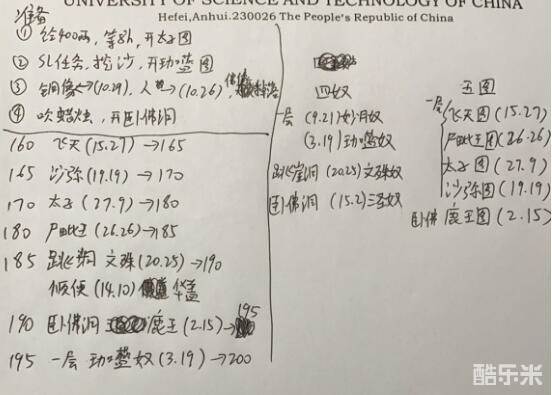 UNIVERSITY OF SCIENCE AND TECHNOLOGY OF CHINA
Hefei,Anhui.230026 The People's Republic of China
准备
① 给400两, 等8h, 开太子图
② SL任务, 挖沙, 开劫盗图
③ 铜像←(10.29), 人(10.26)
④ 吹蜡烛, 开卧佛洞
160 飞天(15.27)→165
165 沙弥(19.19)→170
170 太子(27.9)→180
180 尸毗王(26.26)→185
185 跳崖洞 文殊(20.25)→190
倾便(14.10) 华盖
190 卧佛洞 鹿王(2.15)→195
195 一层 劫盗奴(3.19)→200
四奴
一层 (9.21)妙月奴
(3.19)劫盗奴
跳崖洞 (20.25)文殊奴
卧佛洞 (15.2)三宝奴
五图
一层 飞天图(15.27)
尸毗王图(26.26)
太子图(27.9)
沙弥图(19.19)
卧佛 鹿王图(2.15)
酷乐米